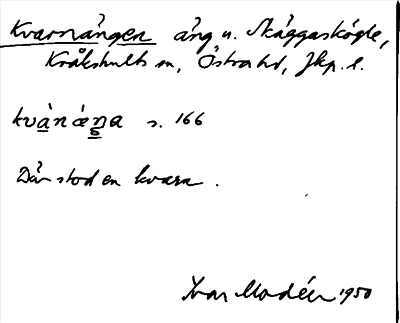 Kvarnängen äng u. Skäggaskögle,
Kråkshults sn, Östra hd, Jkp. l.
kvànáŋa s. 166
Där stod en kvarn.
Ivar Modéer 1950